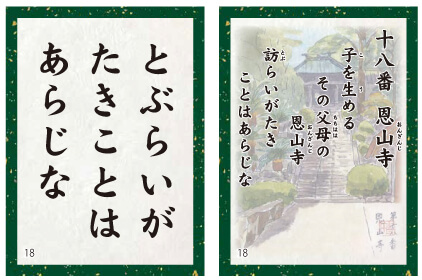 とぶらいが
たきことは
あらじな
18
十八番 恩山寺
おんざんじ
子を生める
こ う
その父母の
ちちはは
恩山寺
おんざんじ
訪らいがたき
とぶ
ことはあらじな
18